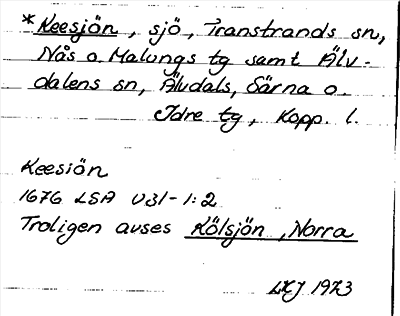 *Keesjön, sjö, Transtrands sn,
Nås o. Malungs tg samt Älv-
dalens sn, Älvdals, Särna o.
Idre tg, Kopp. l.
Keesiön
1676 LSA U31-1:2
Troligen avses Kölsjön, Norra
1973